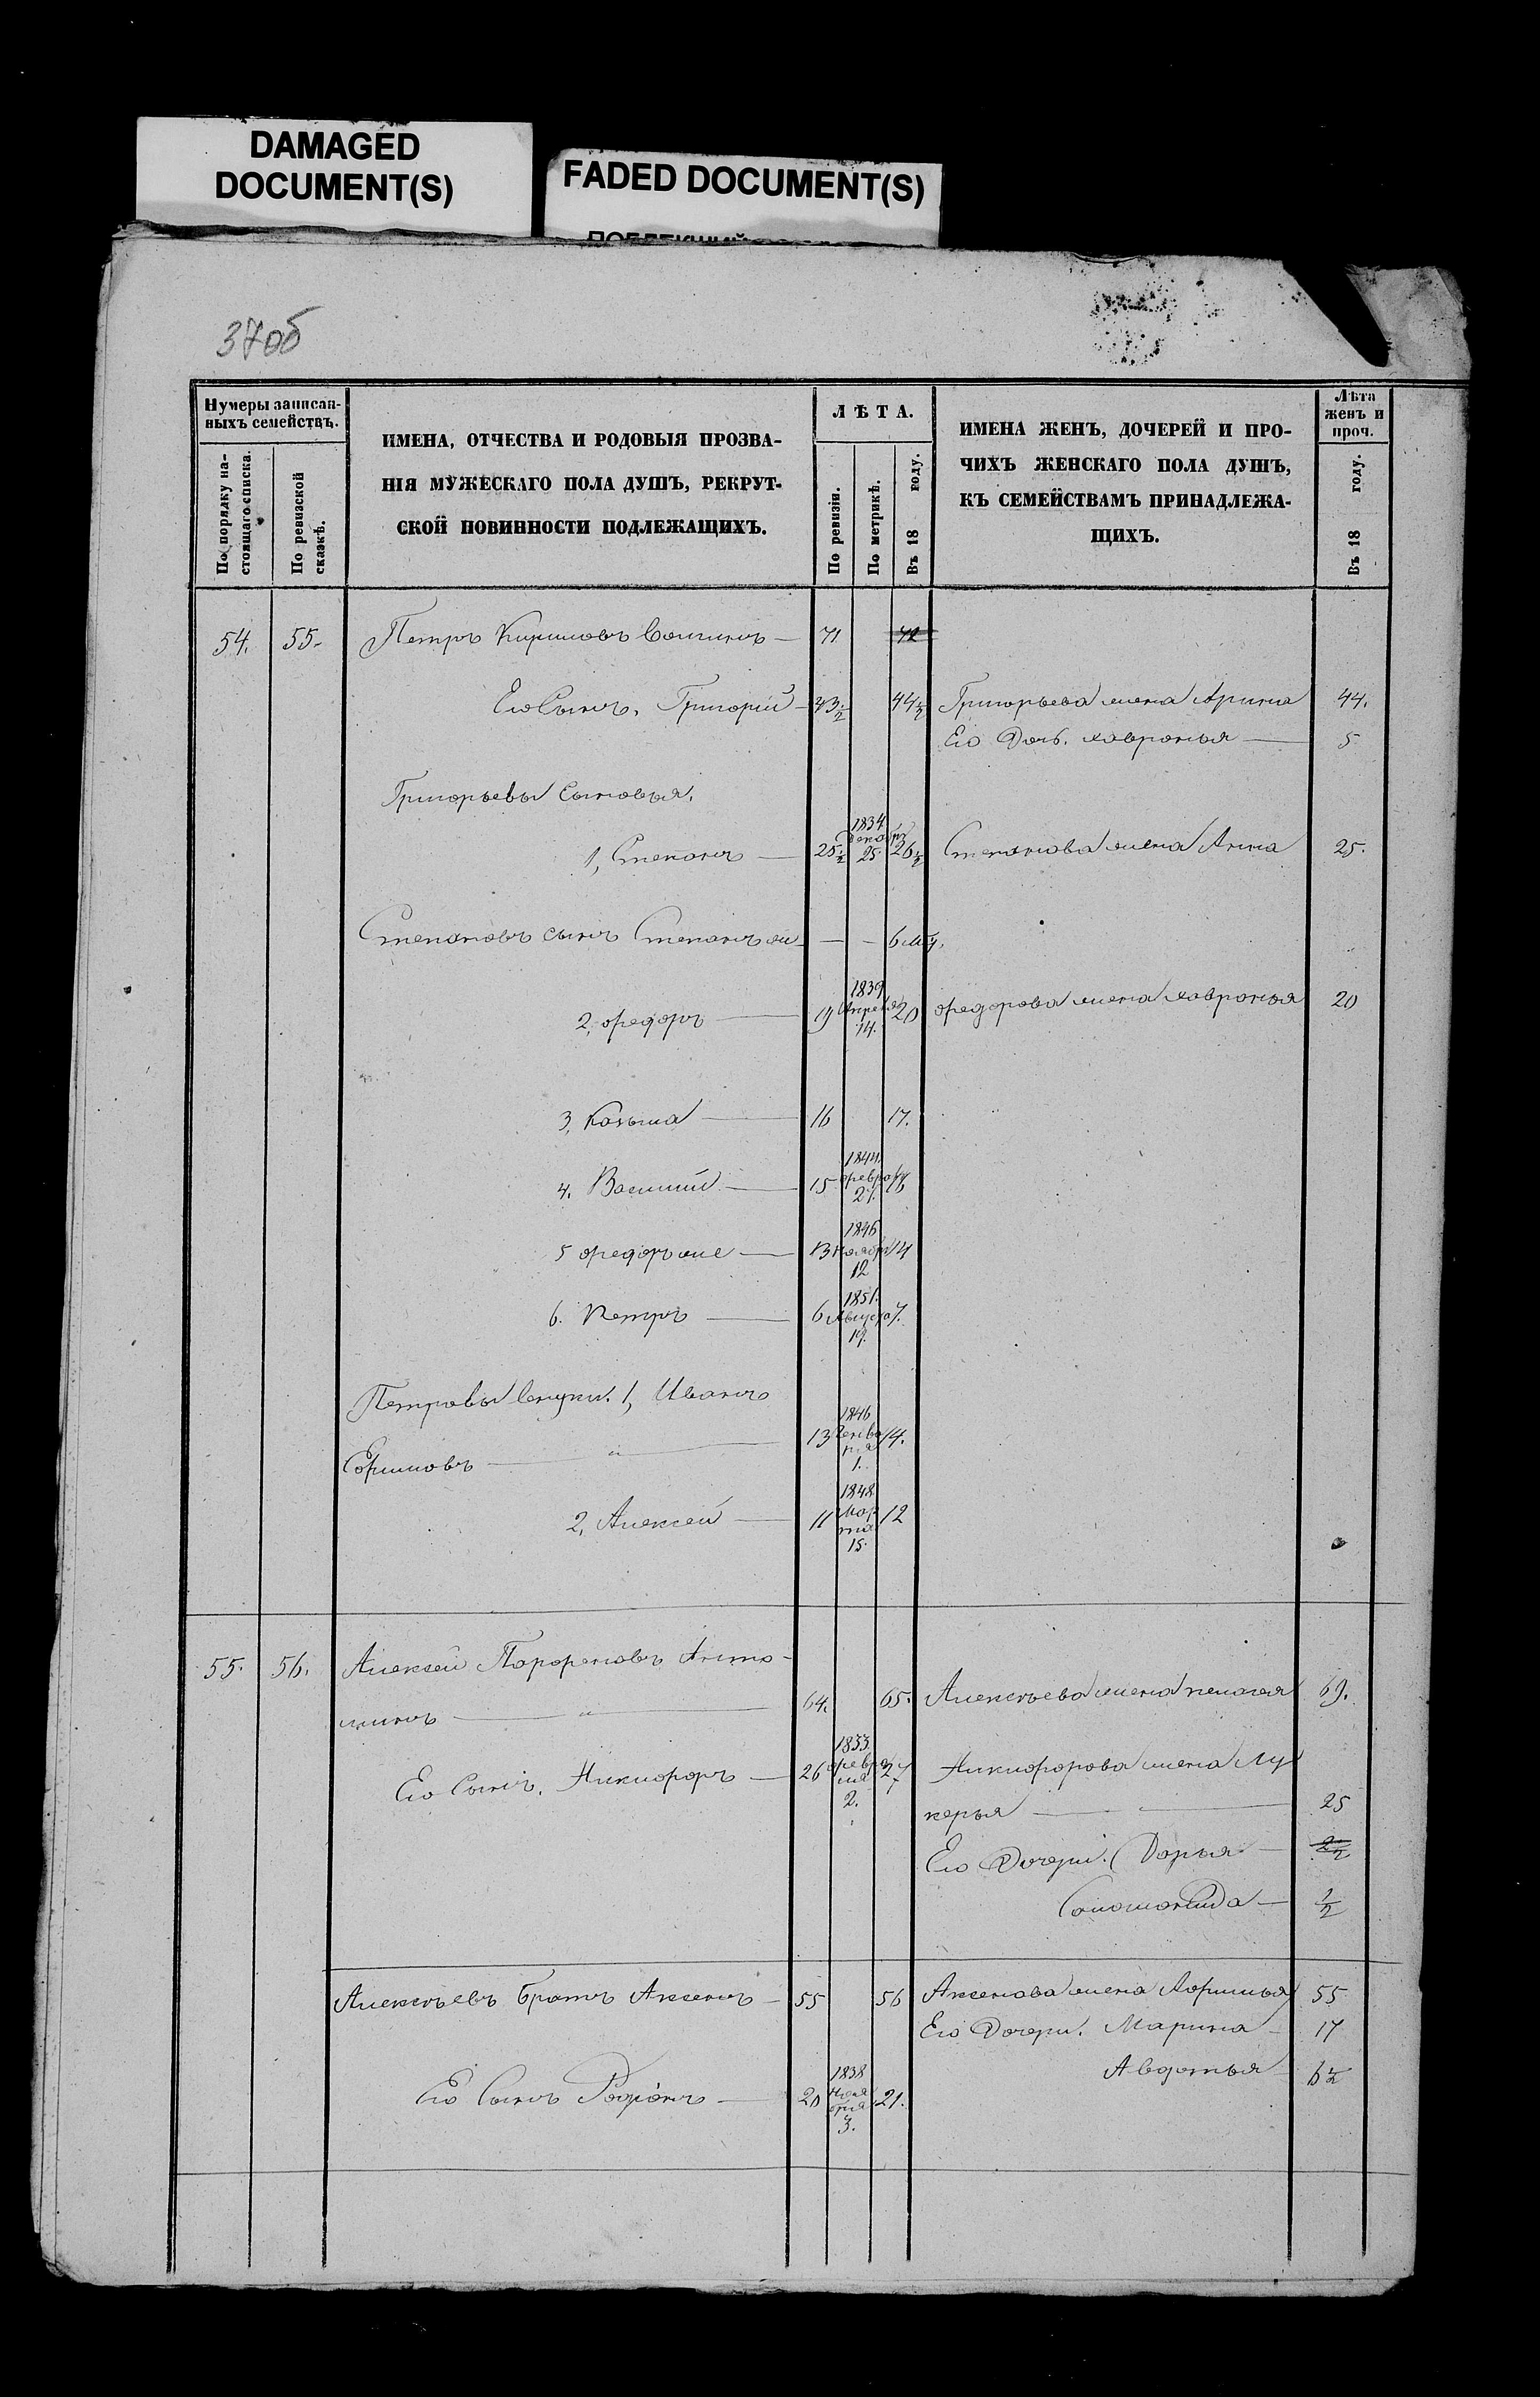 DAMAGED
DOCUMENT(S)
FADED DOCUMENT(S)
37об
Нумеры записан-
ныхъ семействъ.
По порядку на-
стоящаго списка.
По ревизской
сказкѣ.
ИМЕНА, ОТЧЕСТВА И РОДОВЫЯ ПРОЗВА-
НІЯ МУЖЕСКАГО ПОЛА ДУШЪ, РЕКРУТ-
СКОЙ ПОВИННОСТИ ПОДЛЕЖАЩИХЪ.
ЛѢТА.
По ревизіи.
По метрикѣ.
Въ 18 году.
ИМЕНА ЖЕНЪ, ДОЧЕРЕЙ И ПРО-
ЧИХЪ ЖЕНСКАГО ПОЛА ДУШЪ,
КЪ СЕМЕЙСТВАМЪ ПРИНАДЛЕЖА-
ЩИХЪ.
Лѣта
женъ и
проч.
Въ 18 году.
54. 55. Петръ Кириловъ — 71 72
Его Сынъ, Григорій — 43½ 44½ Григорьева жена Арина 44.
Его Дочь. Хавронья — 5
Григорьевы Сыновья,
1, Степанъ — 25½ 1834 Декабр 25 26½ Степанова жена Анна 25.
Степановъ сынъ Степанъ же — — 6 мц.
2, Федоръ — 19 1839 Апреля 14. 20 Федорова жена Хавронья 20
3, Козьма — 16 17.
4. Василий — 15 1844. Февра 21. 16
5 Федоръ же — 13 1846 Ноябр 12 14
6. Петръ — 6 1851. Августа 19. 7.
Петровы внуки. 1, Иванъ
Ефимовъ — 13 1846 Генва ря 1. 14.
2, Алексей — 11 1848 Мар та 15. 12
55. 56. Алексей Парфеновъ Анто-
шкинъ — 64. 65. Алексѣева жена Пелагея 69.
Его Сынъ, Никифоръ — 26 1833 Февра ля 2. 27 Никифорова жена Лу
керья — 25
Его Дочери. Дарья —
Соломонида — ½
Алексѣевъ братъ Аксенъ — 55 56 Аксенова жена Афимья 55
Его Дочери. Марина — 17
Авдотья — 6½
Его Сынъ Родіонъ — 20 1838 Ноя бря 3. 21.